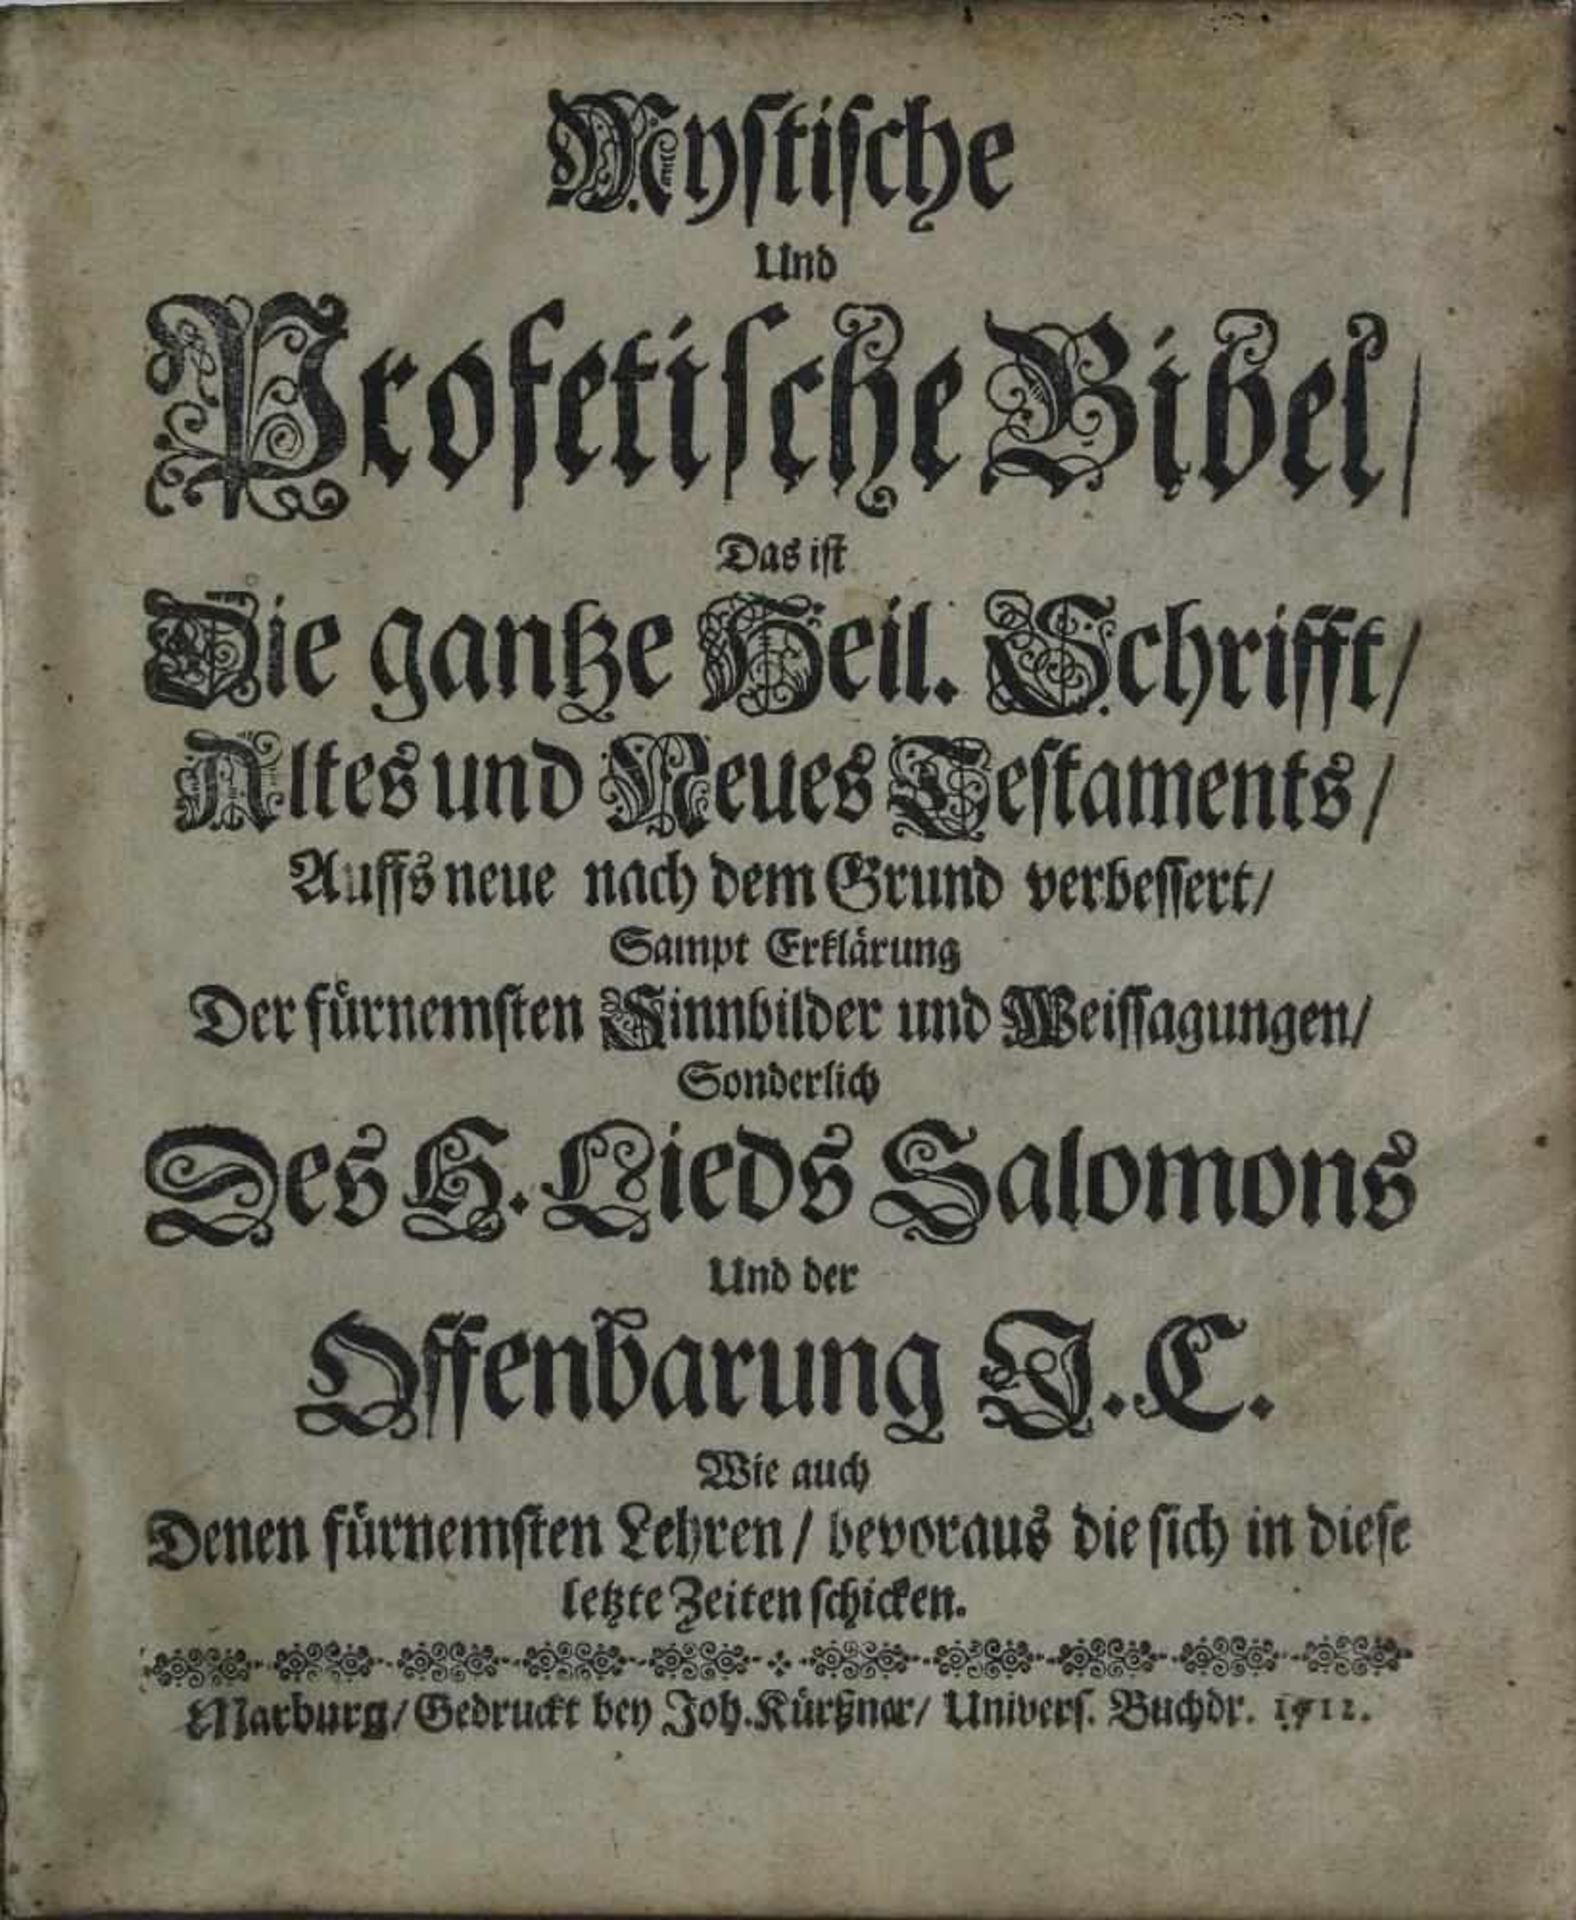 Mystische
Und
Profetische Bibel/
Das ist
Die gantze Heil. Schrifft/
Altes und Neues Testaments/
Auffs neue nach dem Grund verbessert/
Sampt Erklärung
Der fürnemsten Sinnbilder und Weissagungen/
Sonderlich
Des H. Lieds Salomons
Und der
Offenbarung J. C.
Wie auch
Denen fürnemsten Lehren/ bevoraus die sich in diese
letzte Zeiten schicken.
Marburg/ Gedruckt bey Joh. Kürßner/ Univers. Buchdr. 1712.